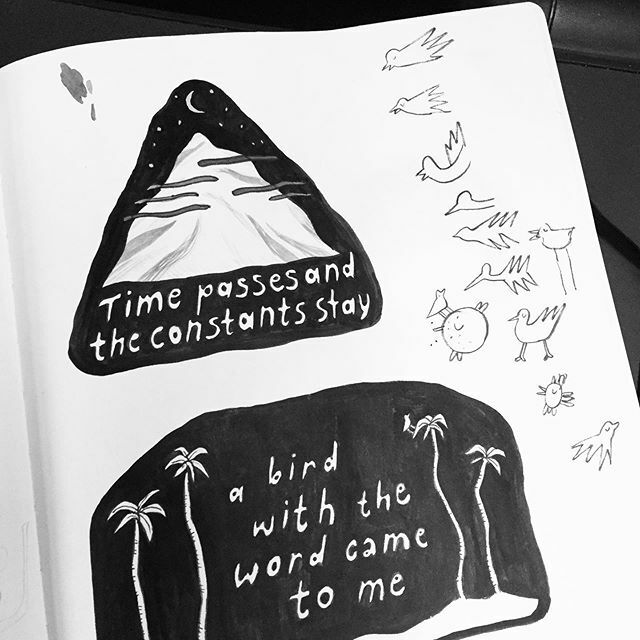 Time passes and
the constants stay
a bird
with the
word came
to me